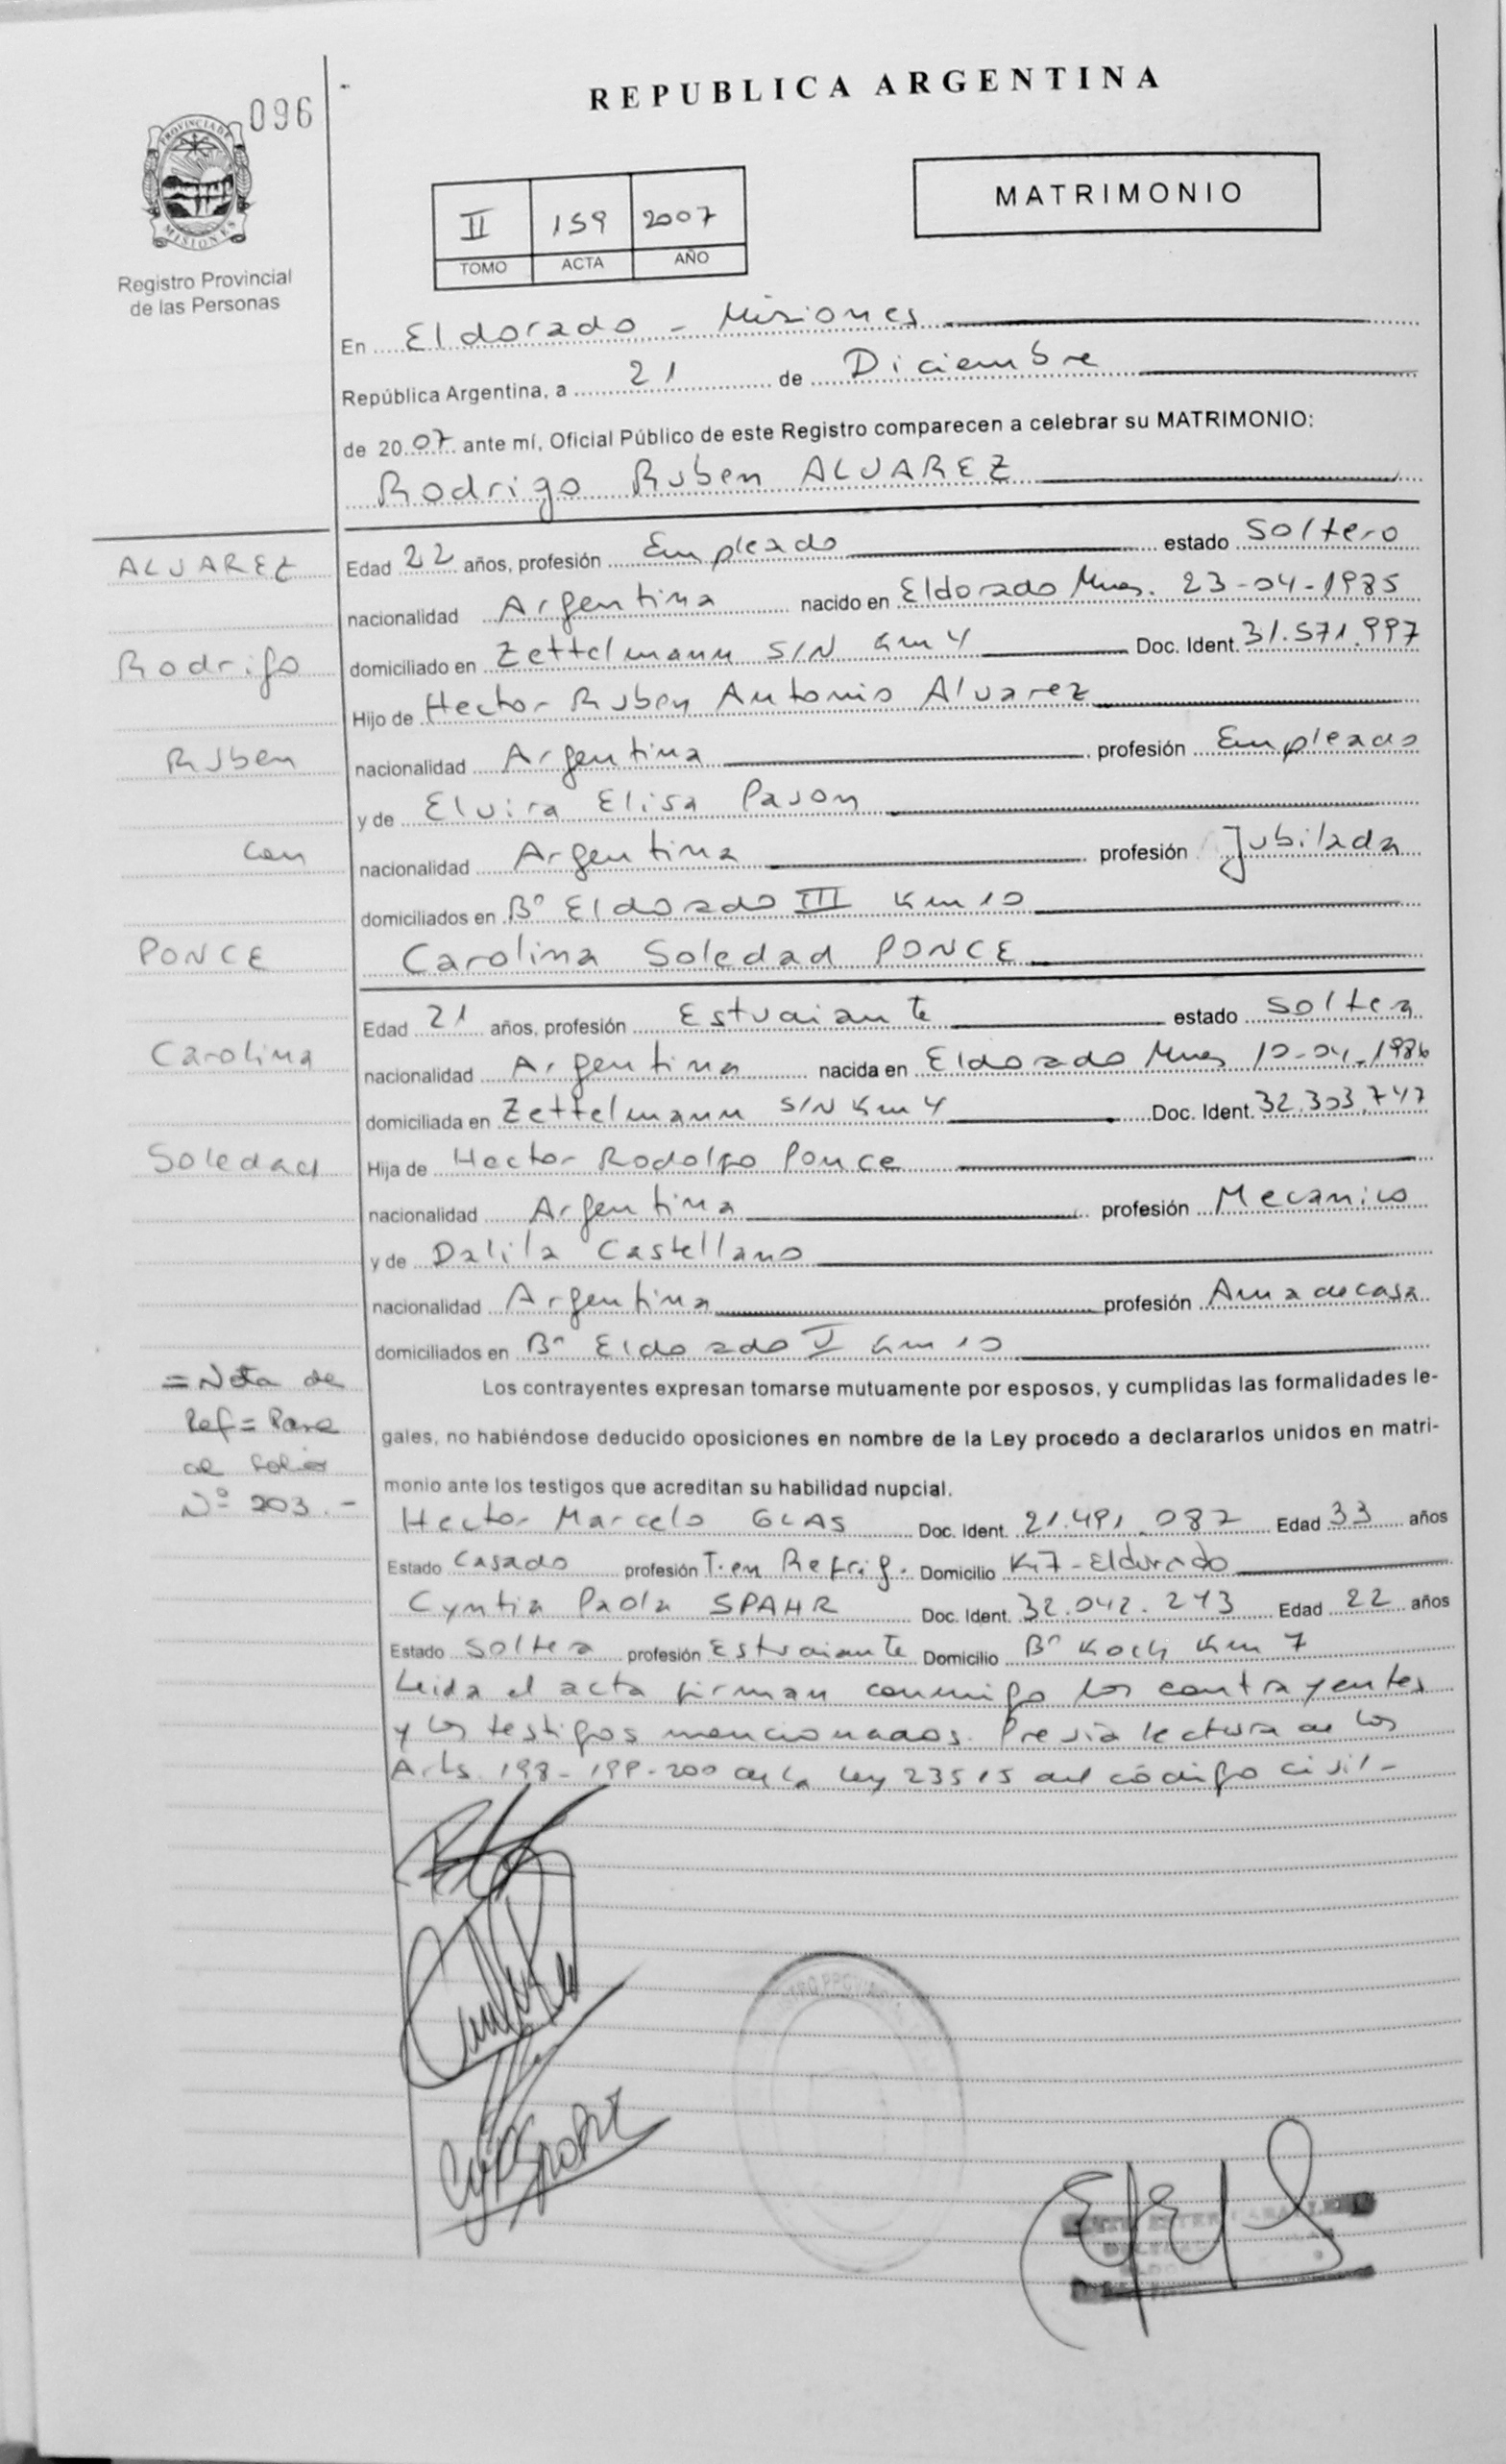 096
REPUBLICA ARGENTINA
PROVINCIA DE MISIONES
Registro Provincial
de las Personas
MATRIMONIO
II 159 2007
TOMO ACTA AÑO
En Eldorado - Misiones
República Argentina, a 21 de Diciembre
de 2007 ante mí, Oficial Público de este Registro comparecen a celebrar su MATRIMONIO:
Rodrigo Ruben ALVAREZ
ALVAREZ
Rodrigo
Ruben
con
PONCE
Carolina
Soledad
Edad 22 años, profesión Empleado estado Soltero
nacionalidad Argentina nacido en Eldorado Mnes. 23-04-1985
domiciliado en Zettelmann S/N Km 4 Doc. Ident. 31.571.997
Hijo de Hector Ruben Antonio Alvarez
nacionalidad Argentina profesión Empleado
y de Elvira Elisa Pavon
nacionalidad Argentina profesión Jubilada
domiciliados en Bº Eldorado III Km 10
Carolina Soledad PONCE
Edad 21 años, profesión Estudiante estado Soltera
nacionalidad Argentina nacida en Eldorado Mnes 10-04-1986
domiciliada en Zettelmann S/N Km 4 Doc. Ident. 32.303.747
Hija de Hector Rodolfo Ponce
nacionalidad Argentina profesión Mecanico
y de Dalila Castellano
nacionalidad Argentina profesión Ama de casa
domiciliados en Bº Eldorado V Km 10
= Nota de
Ref = Pase
al Folio
Nº 203.-
Los contrayentes expresan tomarse mutuamente por esposos, y cumplidas las formalidades le-
gales, no habiéndose deducido oposiciones en nombre de la Ley procedo a declararlos unidos en matri-
monio ante los testigos que acreditan su habilidad nupcial.
Hector Marcelo GLAS Doc. Ident. 21.491.087 Edad 33 años
Estado Casado profesión T. en Refrig. Domicilio K.7 - Eldorado
Cyntia Paola SPAHR Doc. Ident. 32.042.243 Edad 22 años
Estado Soltera profesión Estudiante Domicilio Bº Koch Km 7
Leida el acta firman conmigo los contrayentes
y los testigos mencionados. Previa lectura de los
Arts. 198-199-200 de la Ley 23515 del código civil-